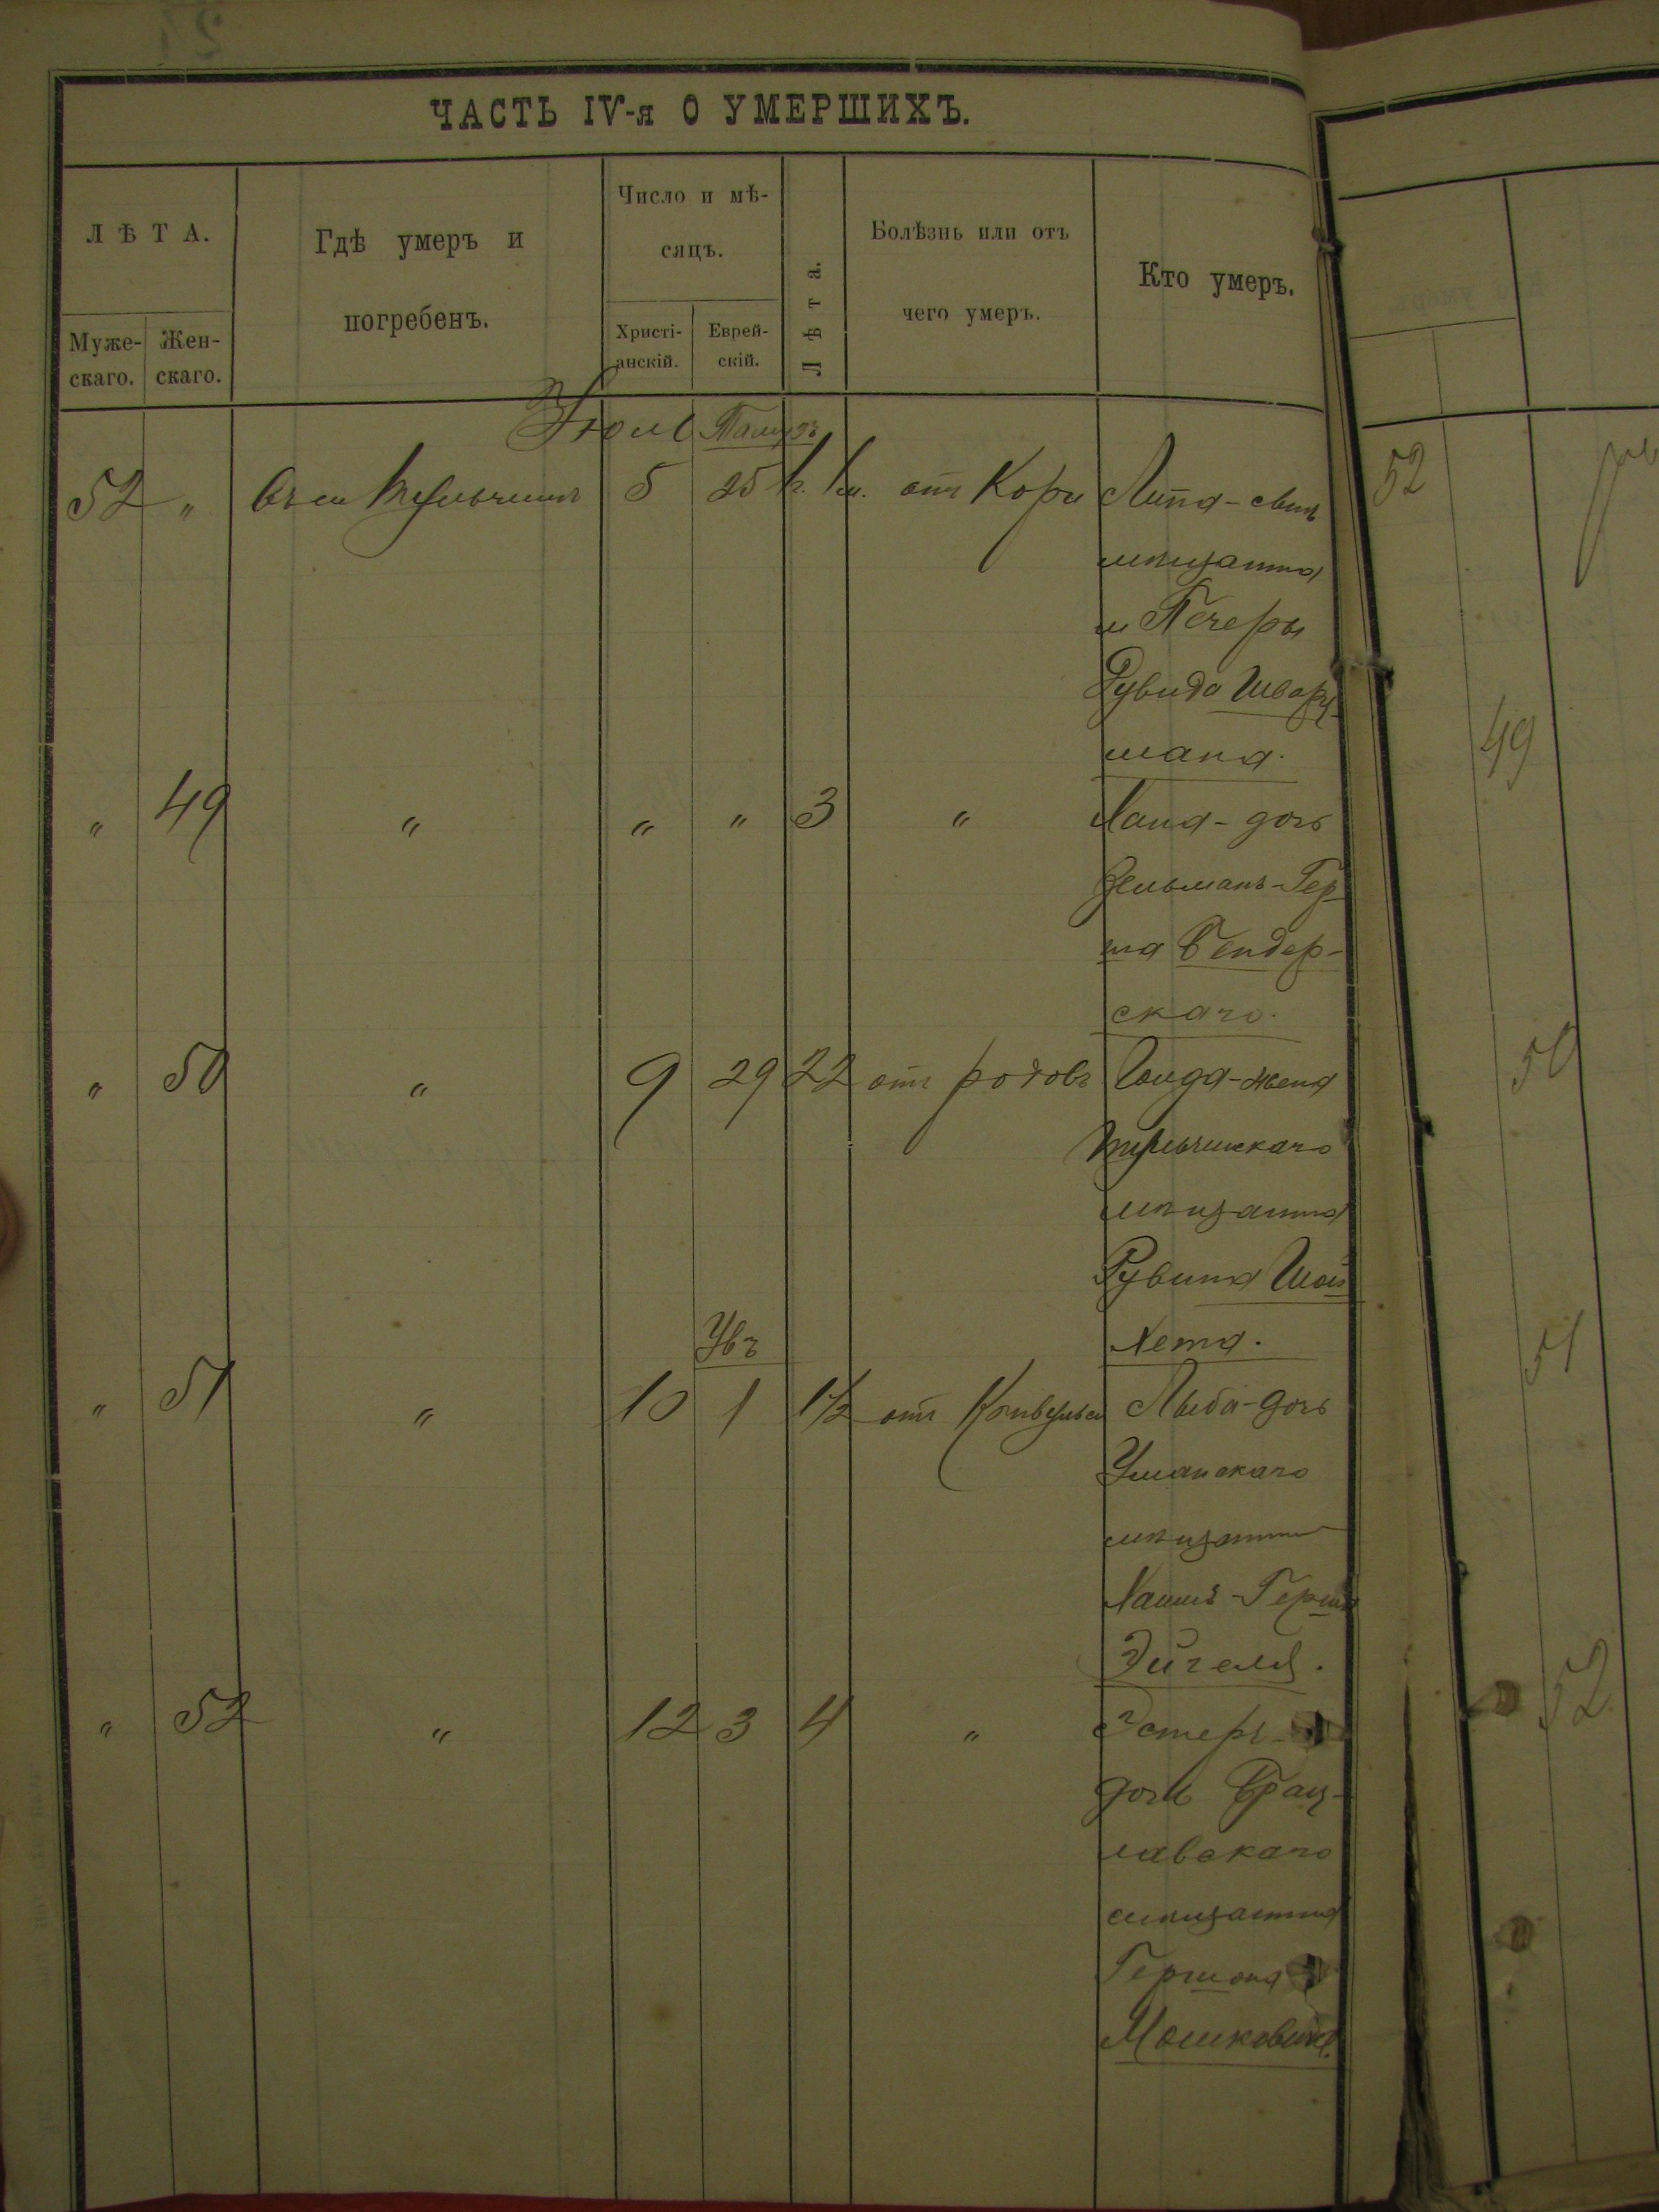 ЧАСТЬ IV-я О УМЕРШИХЪ.
ЛѢТА.
Мужескаго.
Женскаго.
Гдѣ умеръ и
погребенъ.
Число и мѣ-
сяцъ.
Христі-
анскій.
Еврей-
скій.
Лѣта.
Болѣзнь или отъ
чего умеръ.
Кто умеръ.
Іюль Тамузъ
52 " Въ м Тульчинѣ 5 25 от Кори Липа-сынъ
мѣщанина
м Печеры
Рувида Шварц-
мана.
" 49 " " " 3 " Хана-дочь
Зельманъ-Гер
ша Бендер-
скаго.
" 50 " 9 29 22 отъ родовъ Голда-жена
Тульчинскаго
мѣщанина
Рувина Шой
хета.
Увъ
" 51 " 10 1 1 1/2 отъ Лыба-дочь
Уманскаго
мѣщанина
Хаимъ-Герша
Эйгеля.
" 52 " 12 3 4 " Эстеръ-
дочь Брац-
лавскаго
мѣщанина
Гершона
Мошковича.
52
49
50
51
52